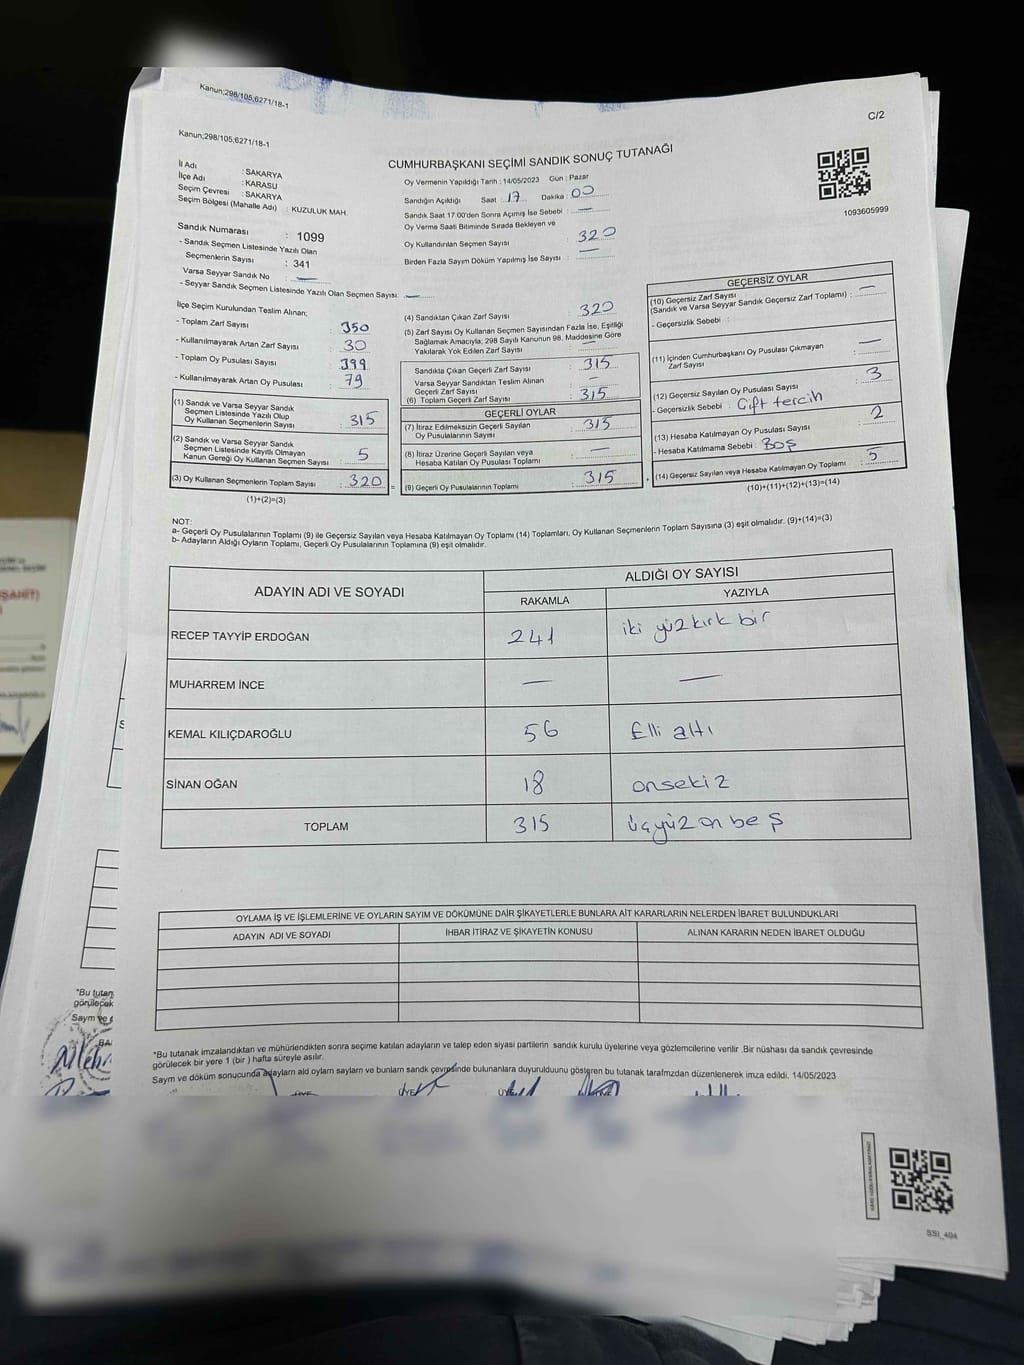 Kanun;298/105;6271/18-1
C/2
Kanun;298/105;6271/18-1
CUMHURBAŞKANI SEÇİMİ SANDIK SONUÇ TUTANAĞI
İl Adı : SAKARYA
İlçe Adı : KARASU
Seçim Çevresi : SAKARYA
Seçim Bölgesi (Mahalle Adı) : KUZULUK MAH.
Sandık Numarası : 1099
- Sandık Seçmen Listesinde Yazılı Olan
Seçmenlerin Sayısı : 341
Varsa Seyyar Sandık No : —
- Seyyar Sandık Seçmen Listesinde Yazılı Olan Seçmen Sayısı: —
Oy Vermenin Yapıldığı Tarih : 14/05/2023 Gün : Pazar
Sandığın Açıldığı Saat : 17 Dakika : 00
Sandık Saat 17:00'den Sonra Açımış İse Sebebi : —
Oy Verme Saati Bitiminde Sırada Bekleyen ve
Oy Kullandırılan Seçmen Sayısı : 320
Birden Fazla Sayım Döküm Yapılmış İse Sayısı : —
1093605999
İlçe Seçim Kurulundan Teslim Alınan;
- Toplam Zarf Sayısı : 350
- Kullanılmayarak Artan Zarf Sayısı : 30
- Toplam Oy Pusulası Sayısı : 399
- Kullanılmayarak Artan Oy Pusulası : 79
(1) Sandık ve Varsa Seyyar Sandık
Seçmen Listesinde Yazılı Olup
Oy Kullanan Seçmenlerin Sayısı : 315
(2) Sandık ve Varsa Seyyar Sandık
Seçmen Listesinde Kayıtlı Olmayan
Kanun Gereği Oy Kullanan Seçmen Sayısı : 5
(3) Oy Kullanan Seçmenlerin Toplam Sayısı : 320 =
(1)+(2)=(3)
(4) Sandıktan Çıkan Zarf Sayısı : 320
(5) Zarf Sayısı Oy Kullanan Seçmen Sayısından Fazla İse, Eşitliği
Sağlamak Amacıyla; 298 Sayılı Kanunun 98. Maddesine Göre
Yakılarak Yok Edilen Zarf Sayısı : —
Sandıkta Çıkan Geçerli Zarf Sayısı : 315
Varsa Seyyar Sandıktan Teslim Alınan
Geçerli Zarf Sayısı : —
(6) Toplam Geçerli Zarf Sayısı : 315
GEÇERLİ OYLAR
(7) İtiraz Edilmeksizin Geçerli Sayılan
Oy Pusulalarının Sayısı : 315
(8) İtiraz Üzerine Geçerli Sayılan veya
Hesaba Katılan Oy Pusulası Toplamı : —
(9) Geçerli Oy Pusulalarının Toplamı : 315 +
GEÇERSİZ OYLAR
(10) Geçersiz Zarf Sayısı
(Sandık ve Varsa Seyyar Sandık Geçersiz Zarf Toplamı) : —
- Geçersizlik Sebebi :
(11) İçinden Cumhurbaşkanı Oy Pusulası Çıkmayan
Zarf Sayısı : —
(12) Geçersiz Sayılan Oy Pusulası Sayısı : 3
- Geçersizlik Sebebi : Çift tercih
(13) Hesaba Katılmayan Oy Pusulası Sayısı : 2
- Hesaba Katılmama Sebebi : Boş
(14) Geçersiz Sayılan veya Hesaba Katılmayan Oy Toplamı : 5
(10)+(11)+(12)+(13)=(14)
NOT:
a- Geçerli Oy Pusulalarının Toplamı (9) ile Geçersiz Sayılan veya Hesaba Katılmayan Oy Toplamı (14) Toplamları, Oy Kullanan Seçmenlerin Toplam Sayısına (3) eşit olmalıdır. (9)+(14)=(3)
b- Adayların Aldığı Oyların Toplamı, Geçerli Oy Pusulalarının Toplamına (9) eşit olmalıdır.
ADAYIN ADI VE SOYADI ALDIĞI OY SAYISI
RAKAMLA YAZIYLA
RECEP TAYYİP ERDOĞAN 241 iki yüz kırk bir
MUHARREM İNCE — —
KEMAL KILIÇDAROĞLU 56 Elli altı
SİNAN OĞAN 18 onsekiz
TOPLAM 315 üçyüz on beş
OYLAMA İŞ VE İŞLEMLERİNE VE OYLARIN SAYIM VE DÖKÜMÜNE DAİR ŞİKAYETLERLE BUNLARA AİT KARARLARIN NELERDEN İBARET BULUNDUKLARI
ADAYIN ADI VE SOYADI İHBAR İTİRAZ VE ŞİKAYETİN KONUSU ALINAN KARARIN NEDEN İBARET OLDUĞU
*Bu tutanak imzalandıktan ve mühürlendikten sonra seçime katılan adayların ve talep eden siyasi partilerin sandık kurulu üyelerine veya gözlemcilerine verilir .Bir nüshası da sandık çevresinde
görülecek bir yere 1 (bir ) hafta süreyle asılır.
Saym ve döküm sonucunda adayların ald oyların saylarn ve bunların sandk çevresinde bulunanlara duyurulduunu gösteren bu tutanak tarafmzdan düzenlenerek imza edildi. 14/05/2023
ÜYE ÜYE ÜYE
*Bu tutan
görülecek
Saym ve
ŞAHİT)
SSI_404